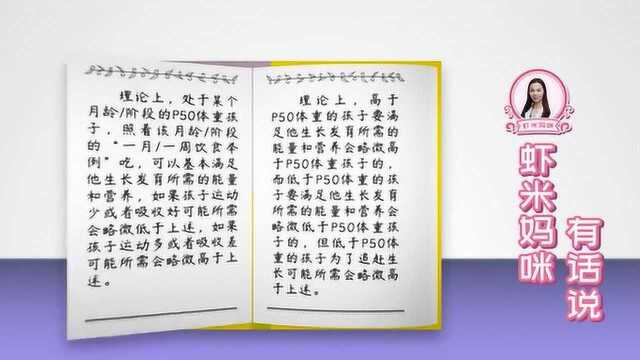 理论上，处于某个
月龄/阶段的P50体重孩
子，照着该月龄/阶段
的“一月/一周饮食举
例”吃，可以基本满足
他生长发育所需的能量
和营养，如果孩子运动
少或者吸收好可能所需
会略微低于上述，如果
孩子运动多或者吸收差
可能所需会略微高于上
述。
理论上，高于
P50体重的孩子要满
足他生长发育所需的
能量和营养会略微高
于P50体重孩子的，
而低于P50体重的孩
子要满足他生长发育
所需的能量和营养会
略微低于P50体重孩
子的，但低于P50体
重的孩子为了追赶生
长可能所需会略微高
于上述。
虾米妈咪
虾米妈咪
有话说